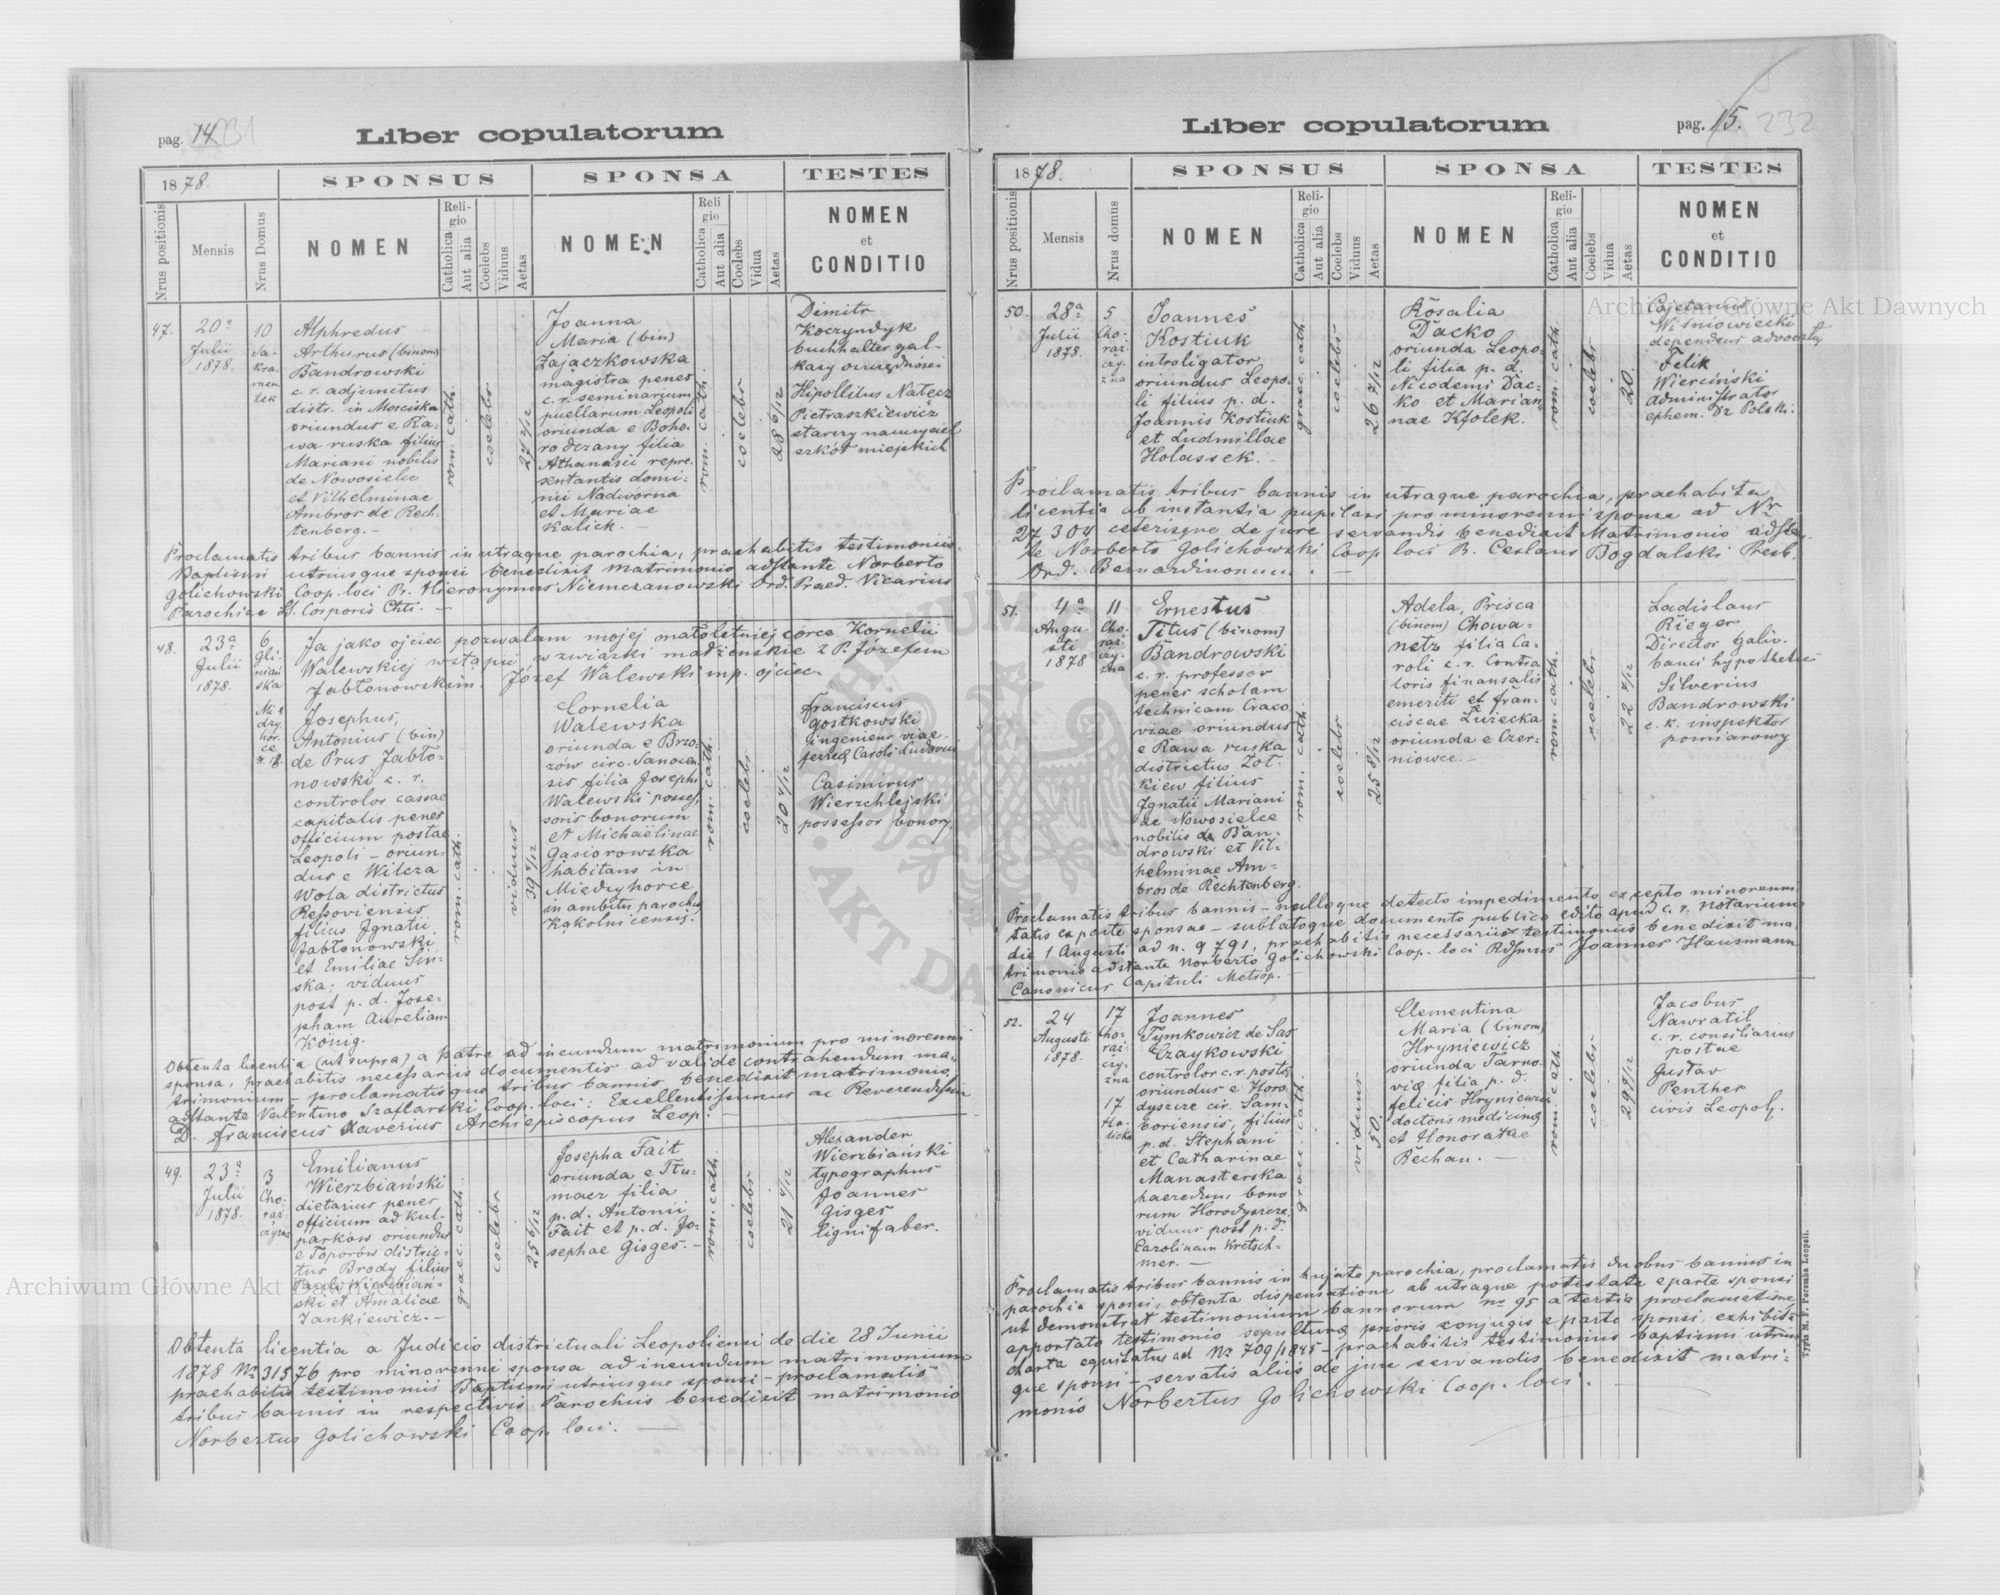 pag. 14. 231
Liber copulatorum
1878.
SPONSUS
SPONSA
TESTES
Nrus positionis
Mensis
Nrus Domus
NOMEN
Religio
Catholica
Aut alia
Coelebs
Viduus
Aetas
NOMEN
Religio
Catholica
Aut alia
Coelebs
Vidua
Aetas
NOMEN
et
CONDITIO
47.
20a
Julii
1878.
10
Sa-
kra-
men-
tek
Alphredus
Arthurus (binom)
Bandrowski
c. r. adjunctus
distr. in Mosciska
oriundus e Ra-
wa ruska filius
Mariani nobilis
de Nowosielce
et Vilhelminae
Ambros de Rech-
tenberg. -
rom. cath.
coelebs
Joanna
Maria (bin)
Zajączkowska
magistra penes
c. r. seminarium
puellarum Leopoli
oriunda e Boho-
rodczany filia
Athanasii repre-
sentantis domi-
nii Nadworna
et Mariae
Kalick. -
rom. cath.
coelebs
28 6/12
Dimitr
Koczyndyk
buchhalter gal-
kasy oszczędności
Hipollitus Natęcz
Pietraszkiewicz
starszy nauczyciel
szkół miejskich
Proclamatis tribus bannis in utraque parochia, praehabitis testimoniis
Baptismi utriusque sponsi benedixit matrimonio adstante Norberto
Golichowski Coop. loci Pr. Hieronymus Niemczanowski Ord. Praed. Vicarius
Parochiae SS. Corporis Chti. -
48.
23a
Julii
1878.
6
Gli-
niań
ska
Mi
dzy-
hor-
ce
n. 18.
Ja jako ojciec pozwalam mojej małoletniej córce Kornelii
Walewskiej wstąpić w związki małżeńskie z P. Józefem
Jabłonowskim. Józef Walewski mp. ojciec.
Josephus,
Antonius (bin)
de Prus Jabło-
nowski c. r.
controlor cassae
capitalis penes
officium postae
Leopoli - oriun-
dus e Wilcza
Wola districtus
Ressoviensis
filius Ignatii
Jabłonowski
et Emiliae Sin-
ska; viduus
post p. d. Jose-
pham Aureliam
König.
rom. cath.
viduus
Cornelia
Walewska
oriunda e Brzo-
zów circ. Sanocen-
sis filia Josephi
Walewski posses-
soris bonorum
et Michaëlinae
Gąsiorowska
habitans in
Międzyhorce
in ambitu parochiae
Kąkolnicensis.
rom. cath.
coelebs
Franciscus
Gostkowski
ingenieur viae
ferreae Caroli Ludovici
Casimirus
Wierzchlejski
possessor bonor.
Obtenta licentia (ut supra) a patre ad ineundum matrimonium pro minorenni
sponsa, praehabitis necessariis documentis ad valide contrahendum ma-
trimonium - proclamatisque tribus bannis benedixit matrimonio,
adstante Valentino Szaflarski Coop. loci: Excellentissimus ac Reverendissim
D. Franciscus Xaverius Archiepiscopus Leop. -
49.
23a
Julii
1878.
3
Cho-
raż
czyzna
Emilianus
Wierzbiański
dietarius penes
officium ad kul-
parków oriundus
e Toporów distric-
tus Brody filius
Pauli Wierzbiań-
ski et Amaliae
Jankiewicz. -
graec. cath.
coelebs
25 6/12
Josepha Fait
oriunda e Tłu-
macz filia
p. d. Antonii
Fait et p. d. Jo-
sephae Gisges. -
rom. cath.
coelebs
Alexander
Wierzbiański
typographus
Joannes
Gisges
lignifaber.
Obtenta licentia a Judicio districtuali Leopoliensi de die 28 Junii
1878 Nr 31576 pro minorenni sponsa ad ineundum matrimonium
praehabitis testimoniis Baptismi utriusque sponsi - proclamatis
tribus bannis in respectivis Parochiis benedixit matrimonio
Norbertus Golichowski Coop. loci. -
pag. 15. 232
Liber copulatorum
1878.
SPONSUS
SPONSA
TESTES
Nrus positionis
Mensis
Nrus domus
NOMEN
Religio
Catholica
Aut alia
Coelebs
Viduus
Aetas
NOMEN
Religio
Catholica
Aut alia
Coelebs
Vidua
Aetas
NOMEN
et
CONDITIO
50.
28a
Julii
1878.
5
Cho-
raż-
czy-
zna
Joannes
Kostiuk
introligator
oriundus Leopo-
li filius p. d.
Joannis Kostiuk
et Ludmillae
Holassek. -
graec. cath.
coelebs
26 7/12
Rosalia
Dacko
oriunda Leopo-
li filia p. d.
Nicodemi Dac-
ko et Marian-
nae Kfolek.
rom. cath.
coelebs
20.
Cajetanus
Wiśniowiecki
dependens advocati
Felix
Wierciński
administrator
ephem. Dz Polski.
Proclamatis tribus bannis in utraque parochia, praehabita
licentia ab instantia pupilari pro minorenni sponsa ad Nr
27304 ceterisque de jure servandis benedixit Matrimonio adstan-
te Norberto Golichowski Coop loci P. Ceslaus Bogdalski Presb.
Ord. Bernardinorum. -
51.
4a
Augu-
sti
1878
11
Cho-
raż-
czy-
zna
Ernestus
Titus (binom)
Bandrowski
c. r. professor
penes scholam
technicam Craco-
viae oriundus
e Rawa ruska
districtus Żoł-
kiew filius
Ignatii Mariani
de Nowosielce
nobilis de Ban-
drowski et Vil-
helminae Am-
bros de Rechtenberg.
rom. cath.
coelebs
25 8/12
Adela, Prisca
(binom) Chowa-
netz filia Ca-
roli c. r. Contra
loris finansalis
emeriti et Fran-
ciscae Łużecka
oriunda e Czer-
niowce. -
rom. cath.
coelebs
Ladislaus
Rieger
Director galiv.
banci hypothetic
Silverius
Bandrowski
c. k. inspektor
pomiarowy
Proclamatis tribus bannis - nulloque detecto impedimento excepto minorenni
tatis ex parte sponsae - sublatoque documento publico edito apud c. r. Notarium
die 1 Augusti ad n. 9791, praehabitis necessariis testimoniis benedixit ma-
trimonio adstante Norberto Golichowski Coop. loci Rdsmus Joannes Hausmann
Canonicus Capituli Metrop. -
52.
24
Augusti
1878.
17
Cho-
raż-
czy-
zna
17
Ha-
licka
Joannes
Tymkowicz de Sas
Czaykowski
controlor c. r. postae
oriundus e Horo-
dyszcze cir. Sam-
boriensis, filius
p. d. Stephani
et Catharinae
Manasterska
haeredum bono
rum Horodyszcze,
viduus post p. d.
Carolinam Kretsch-
mer. -
graeci cath.
viduus
50.
Clementina
Maria (binom)
Hryniewicz
oriunda Tarno-
viae filia p. d.
Felicis Hryniewicz
doctoris medicinae
et Honoratae
Bechan. -
rom. cath.
coelebs
Jacobus
Nawratil
c. r. consiliarius
postae
Gustav
Penther
civis Leopol.
Proclamatis tribus bannis in hujate parochia, proclamatis duobus bannis in
parochia sponsi, obtenta dispensatione ab utraque potestate e parte sponsi
ut demonstrat testimonium bannorum nr 95 a tertia proclamatione
apportato testimonio sepulturae prioris conjugis e parte sponsi, exhibita
charta equitatus ad Nr 709/1845 - praehabitis testimoniis baptismi utrius
que sponsi - servatis aliis de jure servandis benedixit matri-
monio Norbertus Golichowski Coop. loci. -
Typo M. F. Poremba Leopoli.
Archiwum Główne Akt Dawnych
Archiwum Główne Akt Dawnych